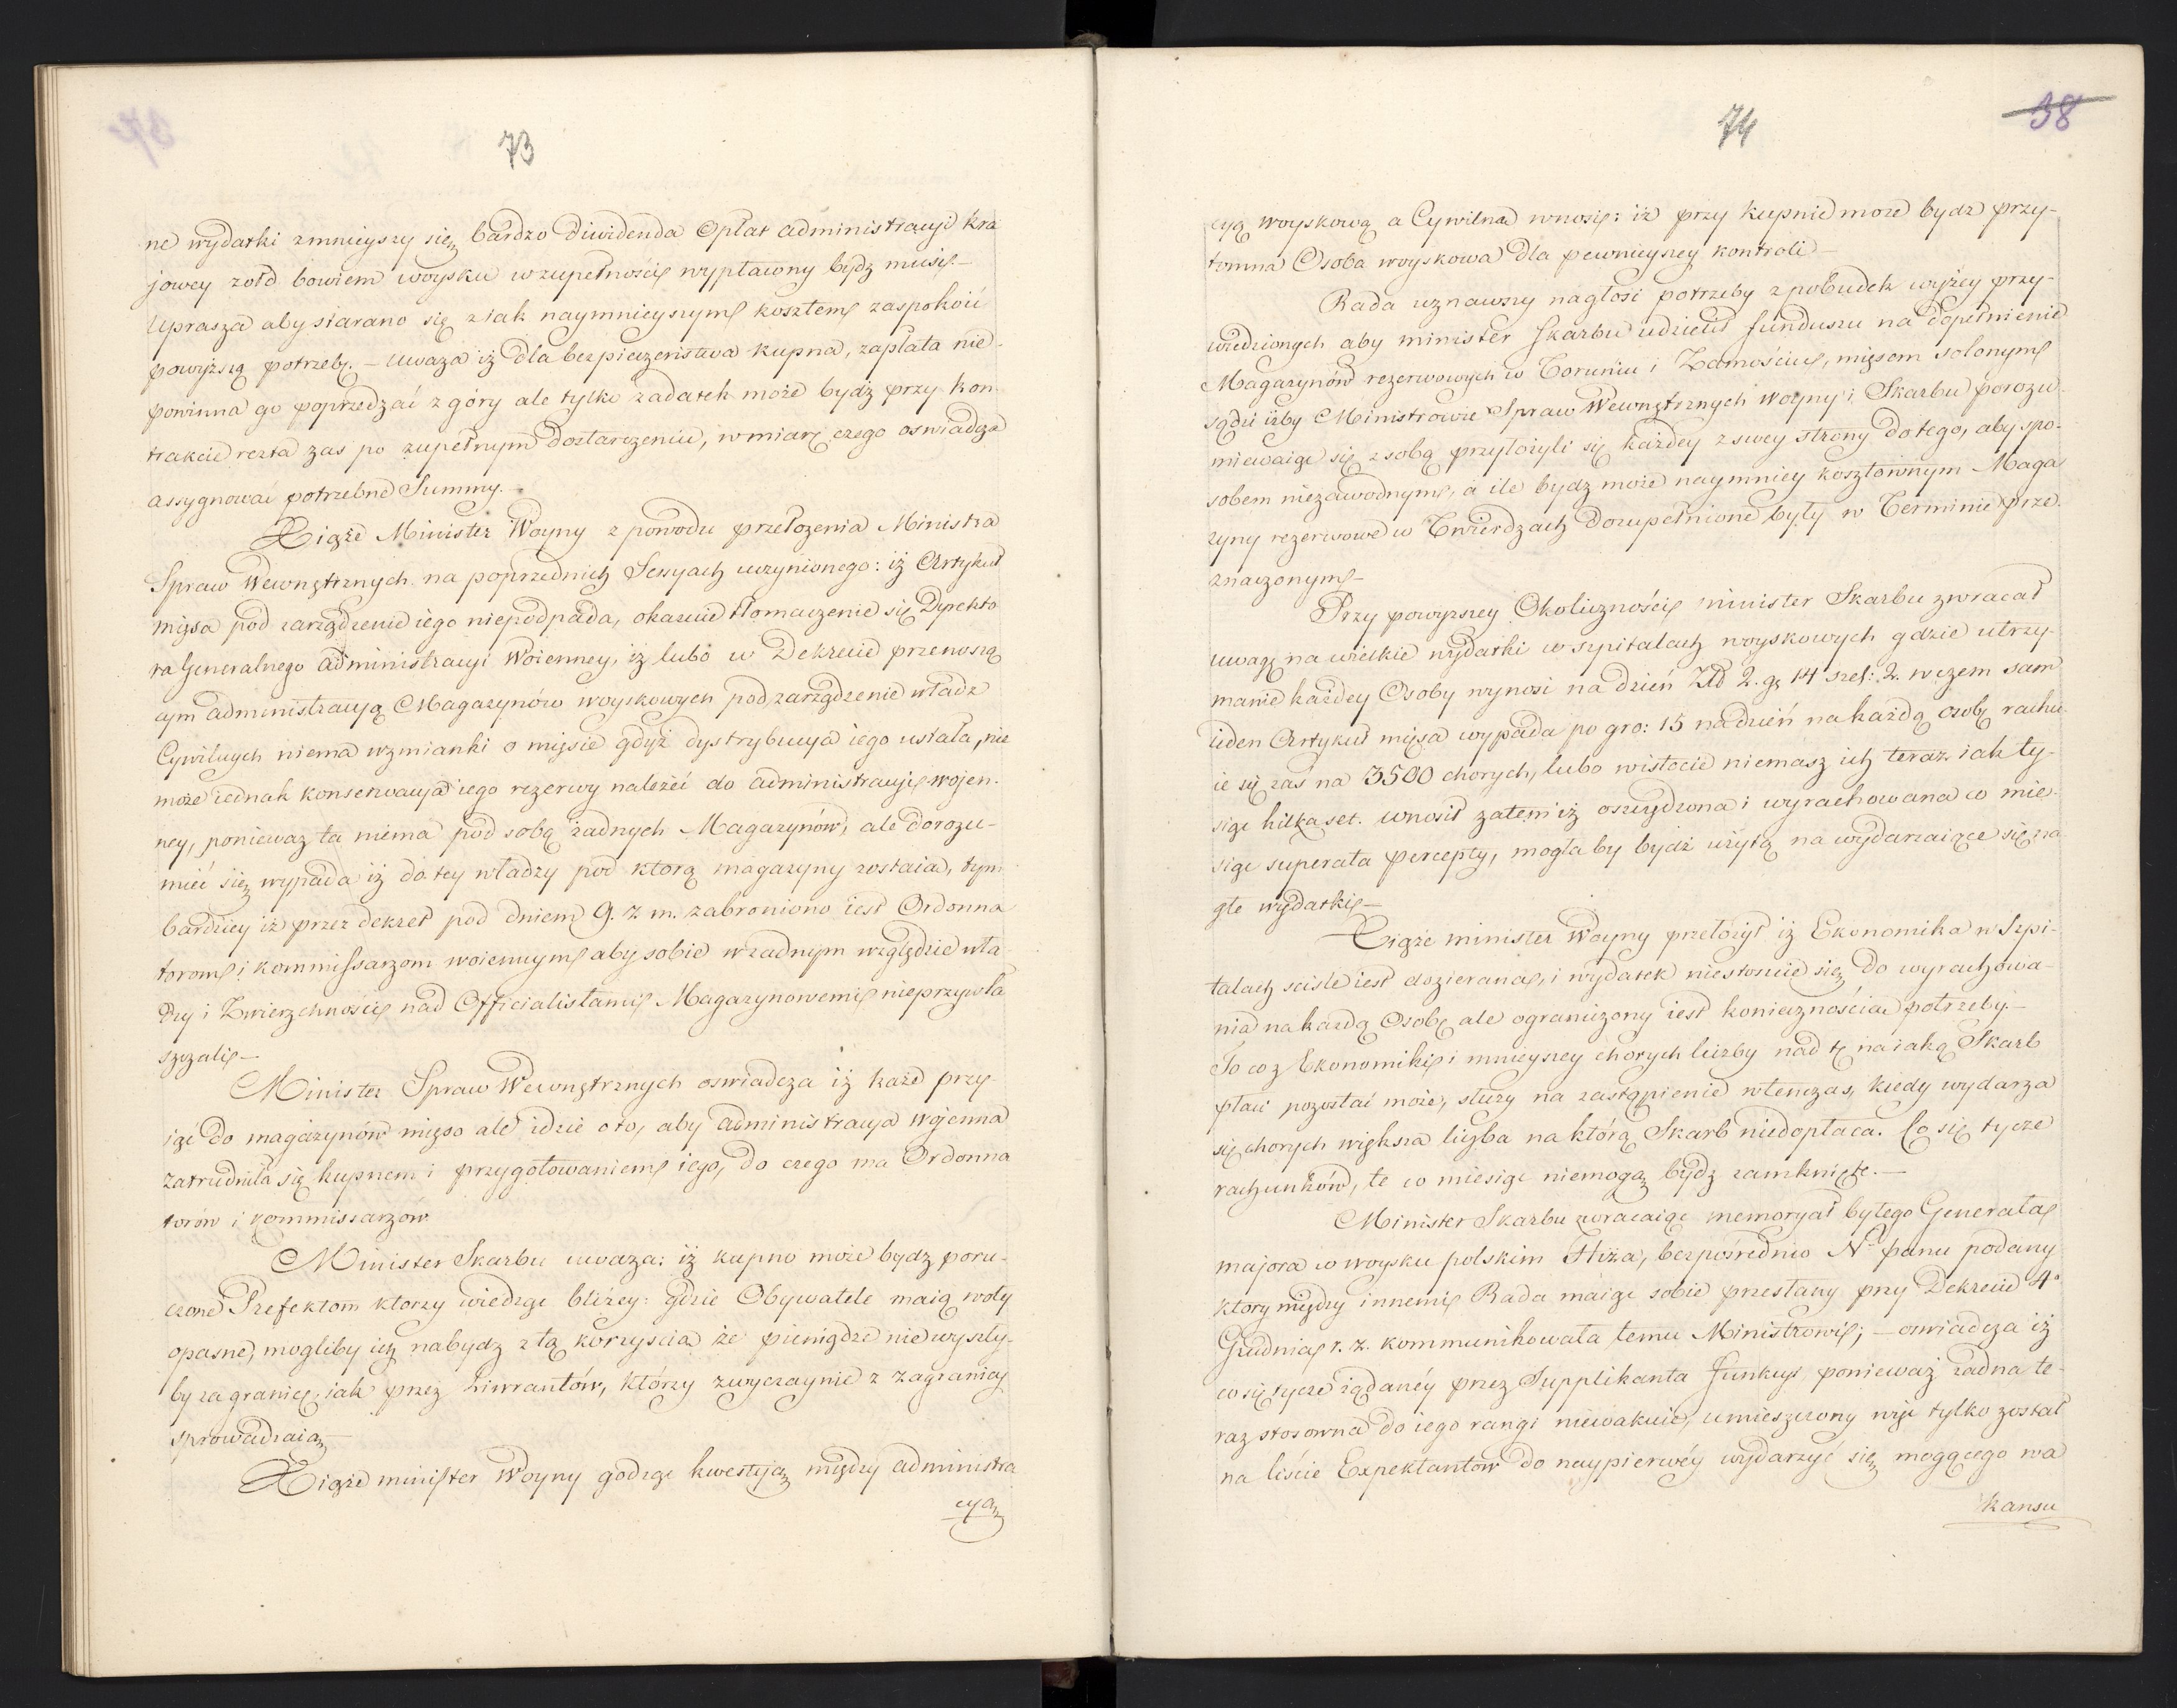 73
ne wydatki zmnieyszy się bardzo Diwidenda Opłat administracyi kra
jowey żołd bowiem woysku w zupełności wypłacony bydz musi.—
uprasza aby starano się z iak naymnieyszym kosztem zaspokoić
powyższą potrzebę. — uważa iż dla bezpieczeństwa kupna, zapłata nie-
powinna go poprzedzać z góry ale tylko zadatek może bydź przy kon-
trakcie reszta zaś po zupełnym dostarczeniu, w miarę czego oswiadcza
assygnować potrzebne Summy.—
Xiąże Minister Woyny z powodu przełożenia Ministra
Spraw Wewnętrznych na poprzednich Sessyach uczynionego: iż Artykuł
mięsa pod zarządzenie iego niepodpada, okazuie tłomaczenie się Dyrekto
ra Generalnego administracyi Woienney, iż lubo w Dekrecie przenoszą
cym administracyą Magazynów woyskowych pod zarządzenie władz
Cywilnych niema wzmianki o mięsie gdyż dystrybucya iego ustała, nie
może iednak konserwacya iego rezerwy należeć do administracyi wojen-
ney, ponieważ ta niema pod sobą żadnych Magazynów, ale dorozu-
mieć się wypada iż do tey władzy pod ktorą magazyny zostaią, tym
bardziey iż przez dekret pod dniem 9. z. m. zabroniono iest Ordonna
torom i kommissarzom woiennym aby sobie w żadnym względzie wła
dzy i Zwierzchności nad Officialistami Magazynowemi nieprzywła
szczali—
Minister Spraw Wewnętrznych oswiadcza iż każe przy-
iąć do magazynów mięso ale idzie o to, aby administracya wojenna
zatrudniła się kupnem i przygotowaniem iego, do czego ma Ordonna
torów i kommissarzow
Minister Skarbu uważa: iż kupno może bydz poru-
czone Prefektom ktorzy wiedząc bliżey: gdzie Obywatele maią woły
opasne, mogliby ich nabydz z tą korzyscią że pieniądze nie wyszły-
by za granicę, iak przez Liwrantów, którzy zwyczaynie z zagranicy
sprowadzaią—
Xiąże minister Woyny godząc kwestyą między administra
cyą
74
38
cyą woyskową a Cywilną wnosi: iż przy kupnie może bydz przy-
tomna Osoba woyskowa dla pewnieyszey kontroli—
Rada uznawszy nagłość potrzeby z pobudek wyżey przy-
wiedzionych aby minister Skarbu udzielił funduszu na dopełnienie
Magazynów rezerwowych w Toruniu i Zamościu, mięsem solonym
sądzi iżby Ministrowie Spraw Wewnętrznych Woyny i Skarbu porozu-
miewaiąc się z sobą przyłożyli się każdey z swey strony do tego, aby spo-
sobem niezawodnym, a ile bydz może naymniey kosztownym Maga
zyny rezerwowe w Twierdzach dozupełnione były w Terminie prze-
znaczonym—
Przy powyższey Okoliczności minister Skarbu zwracał
uwagę na wielkie wydatki w szpitalach woyskowych gdzie utrzy-
manie każdey Osoby wynosi na dzień Złp 2. gr 14 szel: 2. w czem sam
ieden Artykuł mięsa wypada po gro: 15 na dzień na każdą osobę rachu-
ie się zaś na 3500 chorych, lubo w istocie niemasz ich teraz iak ty-
siąc kilkaset. wnosił zatem iż oszczędzona i wyrachowana co mie-
siąc superata percepty, mogła by bydź użytą na wydarzaiące się na
głe wydatki—
Xiąże minister Woyny przełożył iż Ekonomika w Szpi-
talach ściśle iest dozieraną, i wydatek niestosuie się do wyrachowa-
nia na każdą Osobę ale ograniczony iest koniecznością potrzeby.—
To co z Ekonomiki i mnieyszey chorych liczby nad tę na iaką Skarb
płaci pozostać może, służy na zastąpienie wtenczas, kiedy wydarza
się chorych większa liczba na którą Skarb niedopłaca. Co się tycze
rachunków, te co miesiąc niemogą bydz zamknięte.—
Minister Skarbu zwracaiąc memoryał byłego Generała
majora w woysku polskim Hiża, bezpośrednio Nº panu podany
ktory między innemi Rada maiąc sobie przesłany przy Dekrecie 4º
Grudnia r. z. kommunikowała temu Ministrowi; — oswiadcza iż
co się tycze żądanéy przez Supplikanta funkcyi ponieważ żadna te-
raz stosowna do iego rangi niewakuie, umieszczony więc tylko został
na liście Expektantów do naypierwéy wydarzyć się mogącego wa
kansu